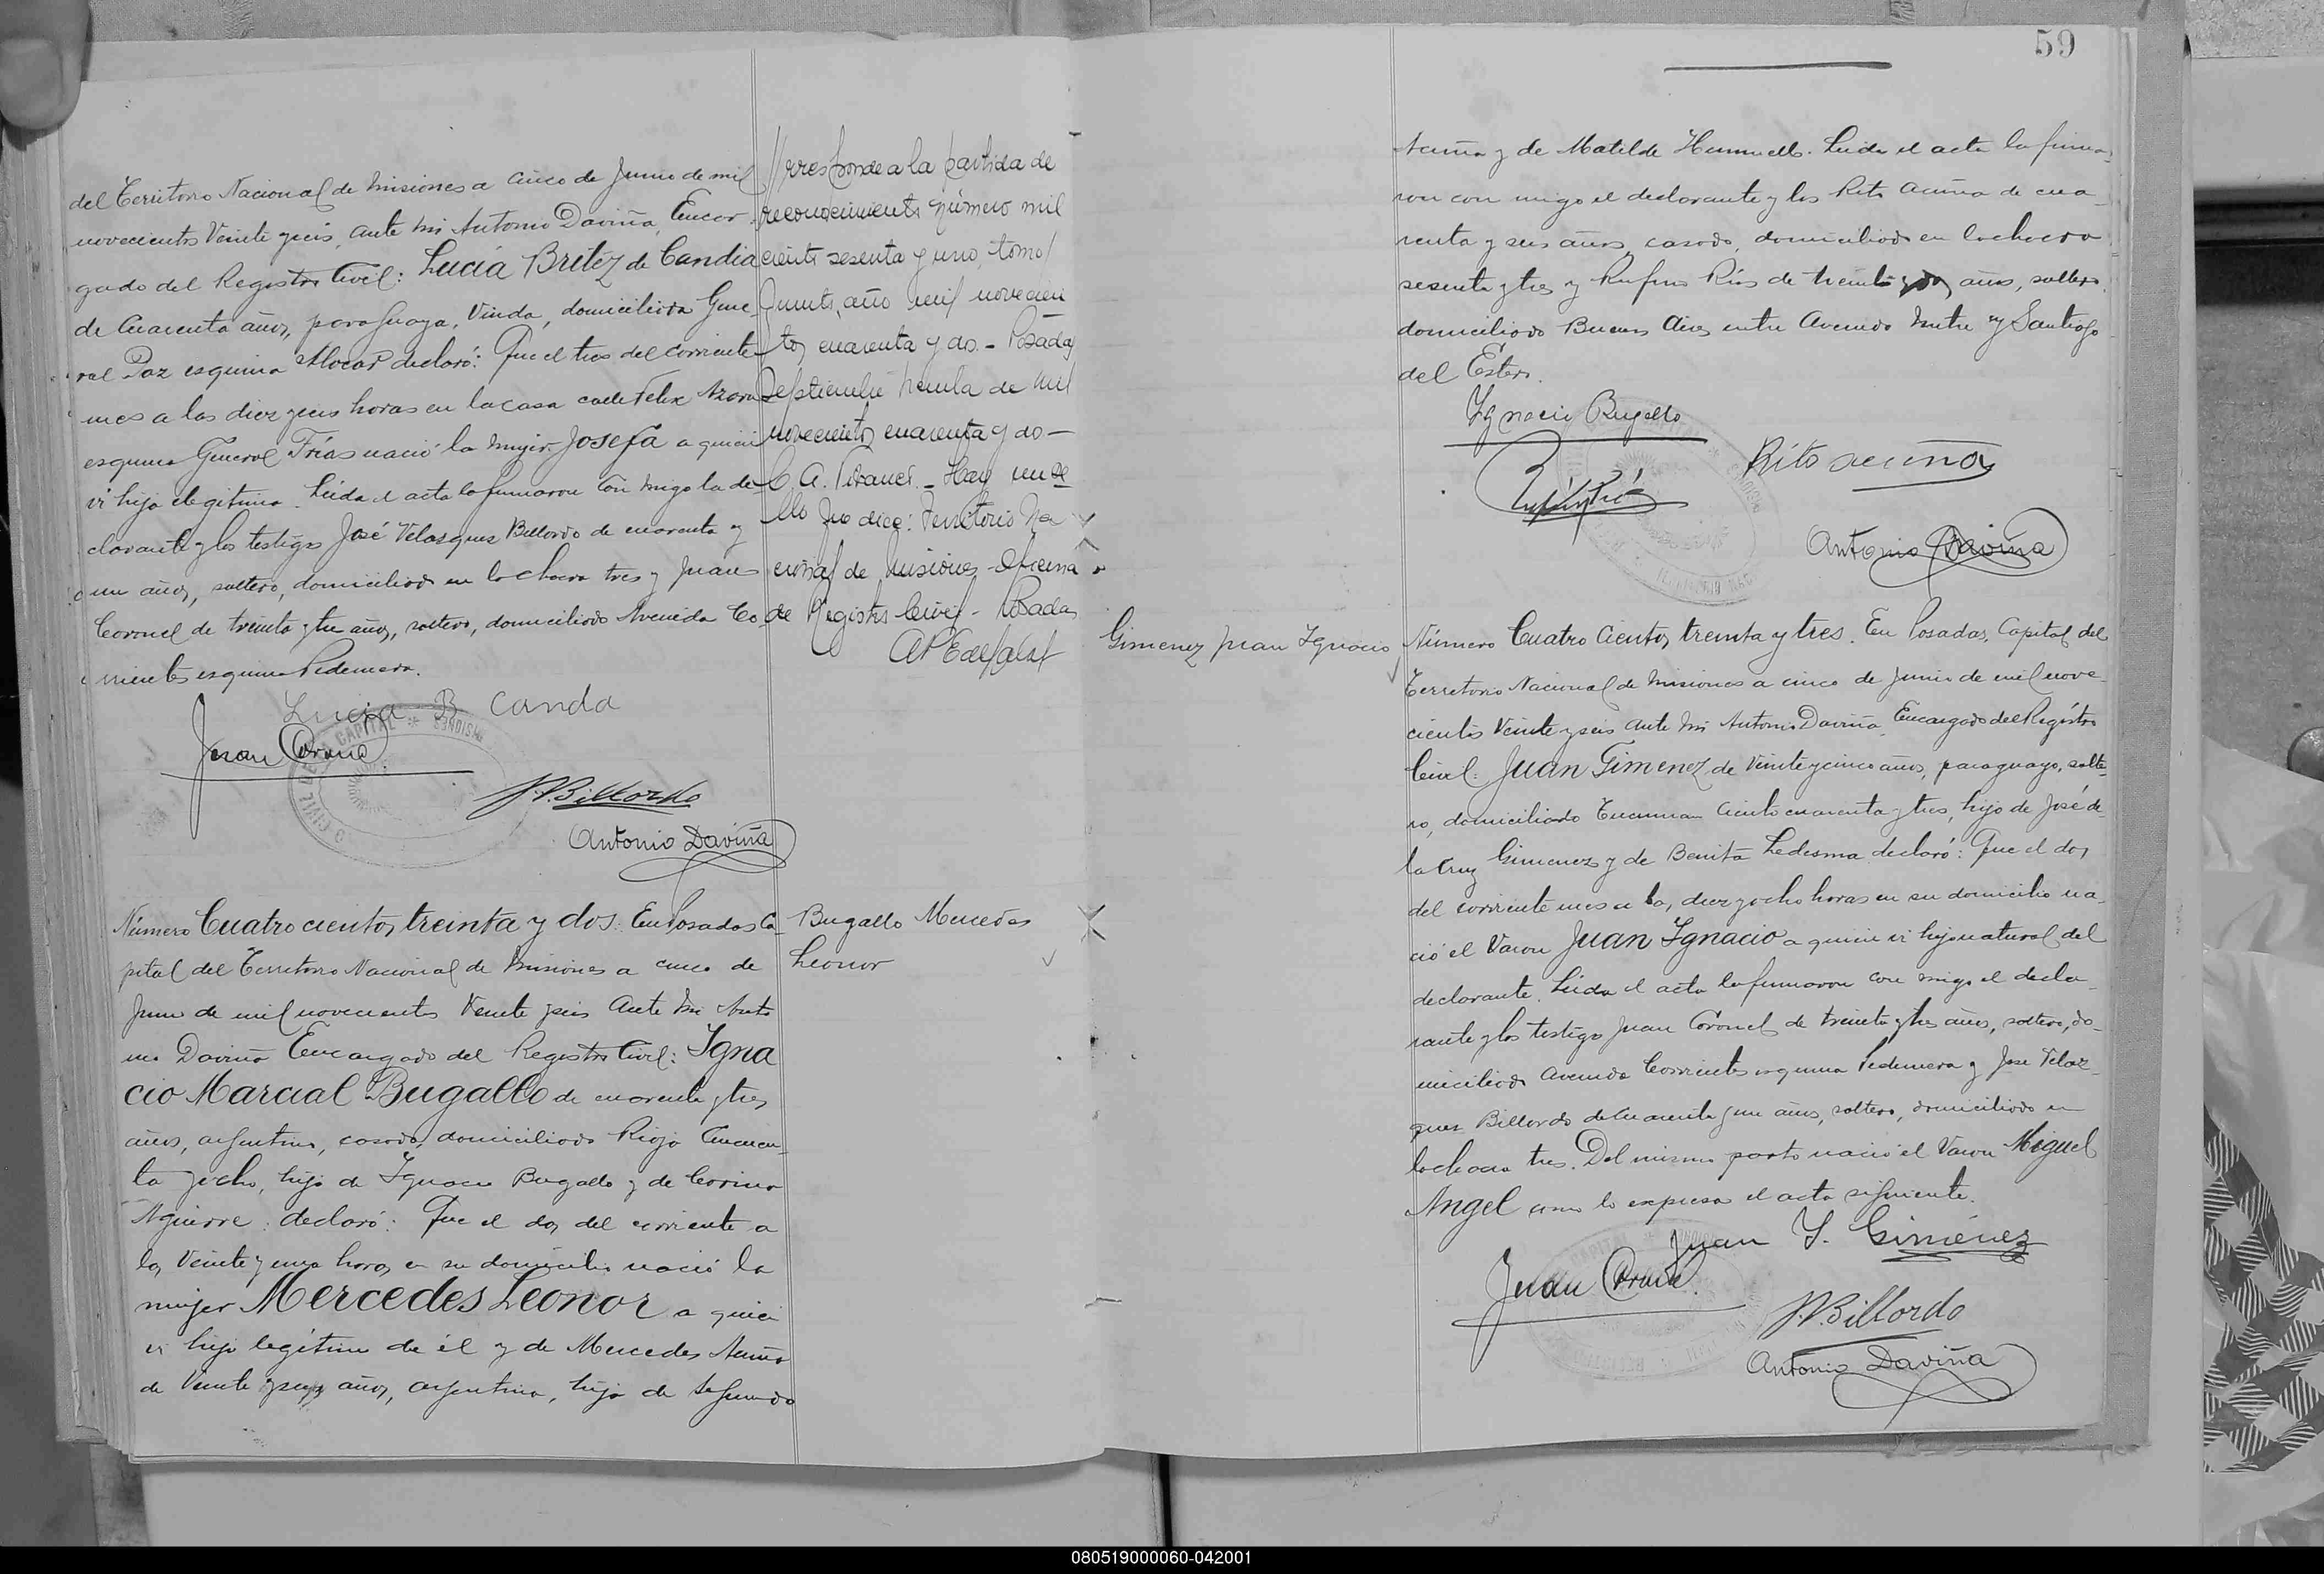 del Territorio Nacional de Misiones a cinco de Junio de mil
novecientos veinte y seis, ante mi Antonio Daviña, Encar-
gado del Registro Civil: Lucía Britez de Candia
de Cuarenta años, paraguaya, Viuda, domiciliada Gene
ral Paz esquina declaró: Que el tres del corriente
mes a las diez y seis horas en la casa calle Felix Azara
esquina General Frías nació la mujer Josefa a quien
vi hija ilegitima. Leida el acta la firmaron con migo la de
clarante y los testigos José Velasquez Billordo de cuarenta y
un años, soltero, domiciliado en la chacra tres y Juan
Coronel de treinta y tres años, soltero, domiciliado Avenida Co
rrientes esquina Pedernera.
Lucia B Canda
Juan Coronel
J.V. Billordo
Antonio Daviña
//rresponde a la partida de
reconocimiento número mil
ciento sesenta y uno, tomo
año mil novecien
tos cuarenta y dos - Posadas
Septiembre treinta de mil
novecientos cuarenta y dos -
C. A. - Hay un se
llo que dice: Territorio Na
cional de Misiones - Oficina
de Registro Civil - Posadas
Número Cuatro cientos treinta y dos: En Posadas Ca-
pital del Territorio Nacional de Misiones a cinco de
Junio de mil novecientos Veinte y seis Ante Mi Anto
nio Daviña Encargado del Registro Civil: Igna
cio Marcial Bugallo de cuarenta y tres
años, argentino, casado, domiciliado Rioja Cincuen-
ta y ocho, hijo de Ignacio Bugallo y de Corina
Aguirre: declaró: Que el dos del corriente a
las Veinte y una horas en su domicilio nació la
mujer Mercedes Leonor a quien
vi hija legítima de él y de Mercedes Acuña
de Veinte y seis años, argentina, hija de Segundo
Bugallo Mercedes
Leonor
59
Acuña y de Matilde. Leida el acta la firma-
ron con migo el declarante y los Rito Acuña de cua-
renta y seis años, casado, domiciliado en la chacra
sesenta y tres y Rufino Rios de treinta y dos años, soltero,
domiciliado Buenos Aires entre Avenida Mitre y Santiago
del Estero.
Ygnacio Bugallo
Rito acuña
Antonio Daviña
Gimenez Juan Ignacio
Número Cuatro Cientos treinta y tres. En Posadas, Capital del
Territorio Nacional de Misiones a cinco de Junio de mil nove-
cientos Veinte y seis ante Mi Antonio Daviña, Encargado del Registro
Civil: Juan Gimenez de Veinte y cinco años, paraguayo, solte-
ro, domiciliado Tucuman Ciento cuarenta y tres, hijo de José de
la Cruz Gimenez y de Benita Ledesma declaró: Que el dos
del corriente mes a las diez y ocho horas en su domicilio na-
ció el Varon Juan Ignacio a quien vi hijo natural del
declarante. Leida el acta la firmaron con migo el decla-
rante y los testigos Juan Coronel de treinta y tres años, soltero, do-
miciliado Avenida Corrientes esquina Pedernera y Jose Velaz-
quez Billordo de Cuarenta y un años, soltero, domiciliado en
la chacra tres. Del mismo parto nació el Varon Miguel
Angel como lo expresa el acta siguiente.
Juan Y. Giménez
Juan Coronel
J.V. Billordo
Antonio Daviña
080519000060-042001